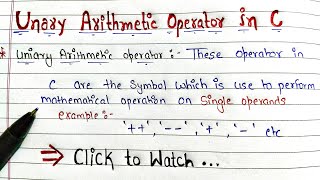 Unary Arithmetic Operator in C
* Uniary Arithmetic operator :- These operator in
C are the symbol which is use to perform
mathematical operation on Single operands
example :-
'++', '--', '+', '-' etc
⇒ Click to Watch ...